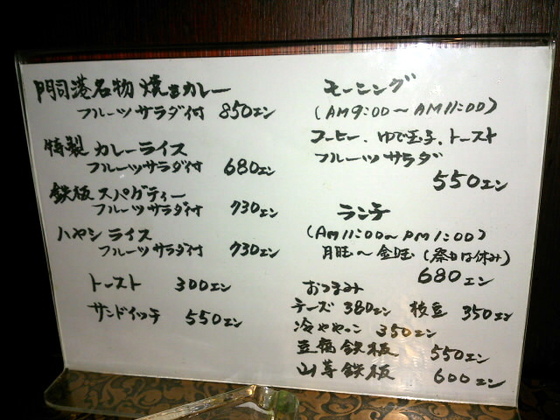 門司港名物 焼きカレー
フルーツサラダ付 850エン
特製 カレーライス
フルーツサラダ付 680エン
鉄板 スパゲティー
フルーツサラダ付 730エン
ハヤシライス
フルーツサラダ付 730エン
トースト 300エン
サンドイッチ 550エン
モーニング
(AM9:00〜AM11:00)
コーヒー、ゆで玉子、トースト
フルーツサラダ
550エン
ランチ
(AM11:00〜PM1:00)
月曜〜金曜 (祭日は休み)
680エン
おつまみ
チーズ 380エン 枝豆 350エン
冷ややっこ 350エン
豆腐鉄板 550エン
山芋鉄板 600エン